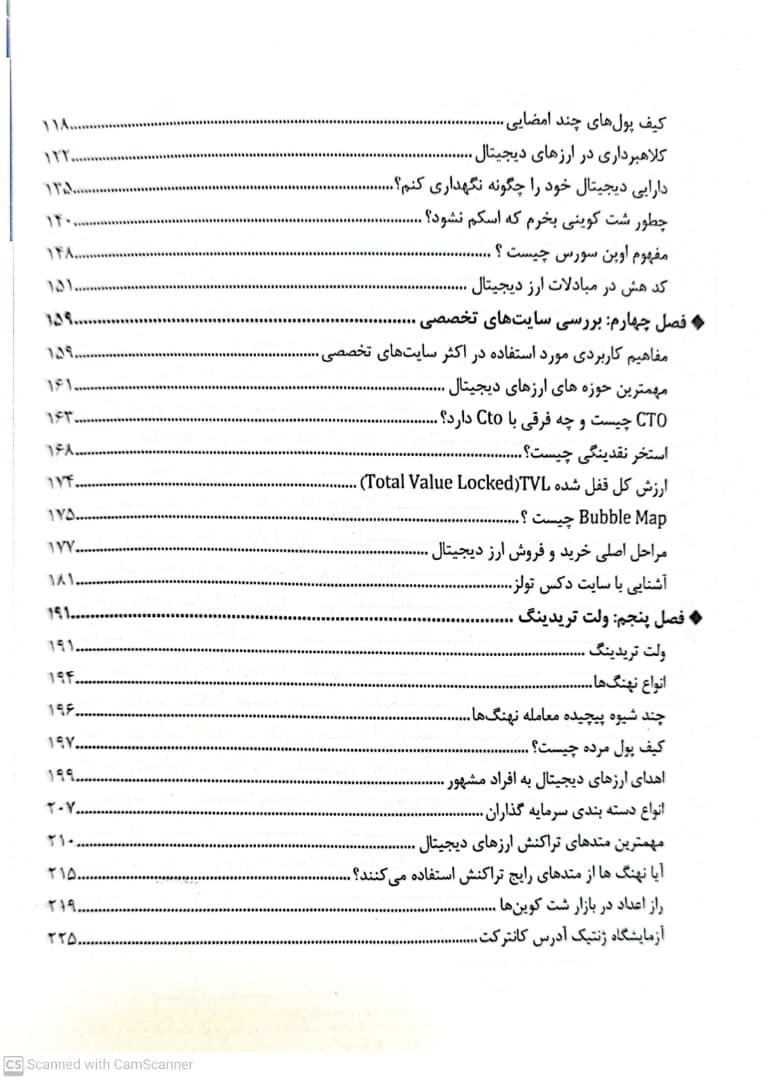 کیف پول‌های چند امضایی ........ ۱۱۸
کلاهبرداری در ارزهای دیجیتال ........ ۱۲۲
دارایی دیجیتال خود را چگونه نگهداری کنم؟ ........ ۱۳۵
چطور شت کوینی بخرم که اسکم نشود؟ ........ ۱۴۰
مفهوم اوپن سورس چیست ؟ ........ ۱۴۸
کد هش در مبادلات ارز دیجیتال ........ ۱۵۱
◆ فصل چهارم: بررسی سایت‌های تخصصی ........ ۱۵۹
مفاهیم کاربردی مورد استفاده در اکثر سایت‌های تخصصی ........ ۱۵۹
مهمترین حوزه های ارزهای دیجیتال ........ ۱۶۱
CTO چیست و چه فرقی با Cto دارد؟ ........ ۱۶۳
استخر نقدینگی چیست؟ ........ ۱۶۸
ارزش کل قفل شده TVL(Total Value Locked) ........ ۱۷۴
Bubble Map چیست ؟ ........ ۱۷۵
مراحل اصلی خرید و فروش ارز دیجیتال ........ ۱۷۷
آشنایی با سایت دکس تولز ........ ۱۸۱
◆ فصل پنجم: ولت تریدینگ ........ ۱۹۱
ولت تریدینگ ........ ۱۹۱
انواع نهنگ‌ها ........ ۱۹۴
چند شیوه پیچیده معامله نهنگ‌ها ........ ۱۹۶
کیف پول مرده چیست؟ ........ ۱۹۷
اهدای ارزهای دیجیتال به افراد مشهور ........ ۱۹۹
انواع دسته بندی سرمایه گذاران ........ ۲۰۷
مهمترین متدهای تراکنش ارزهای دیجیتال ........ ۲۱۰
آیا نهنگ ها از متدهای رایج تراکنش استفاده می‌کنند؟ ........ ۲۱۵
راز اعداد در بازار شت کوین‌ها ........ ۲۱۹
آزمایشگاه ژنتیک آدرس کانترکت ........ ۲۲۵
CS Scanned with CamScanner